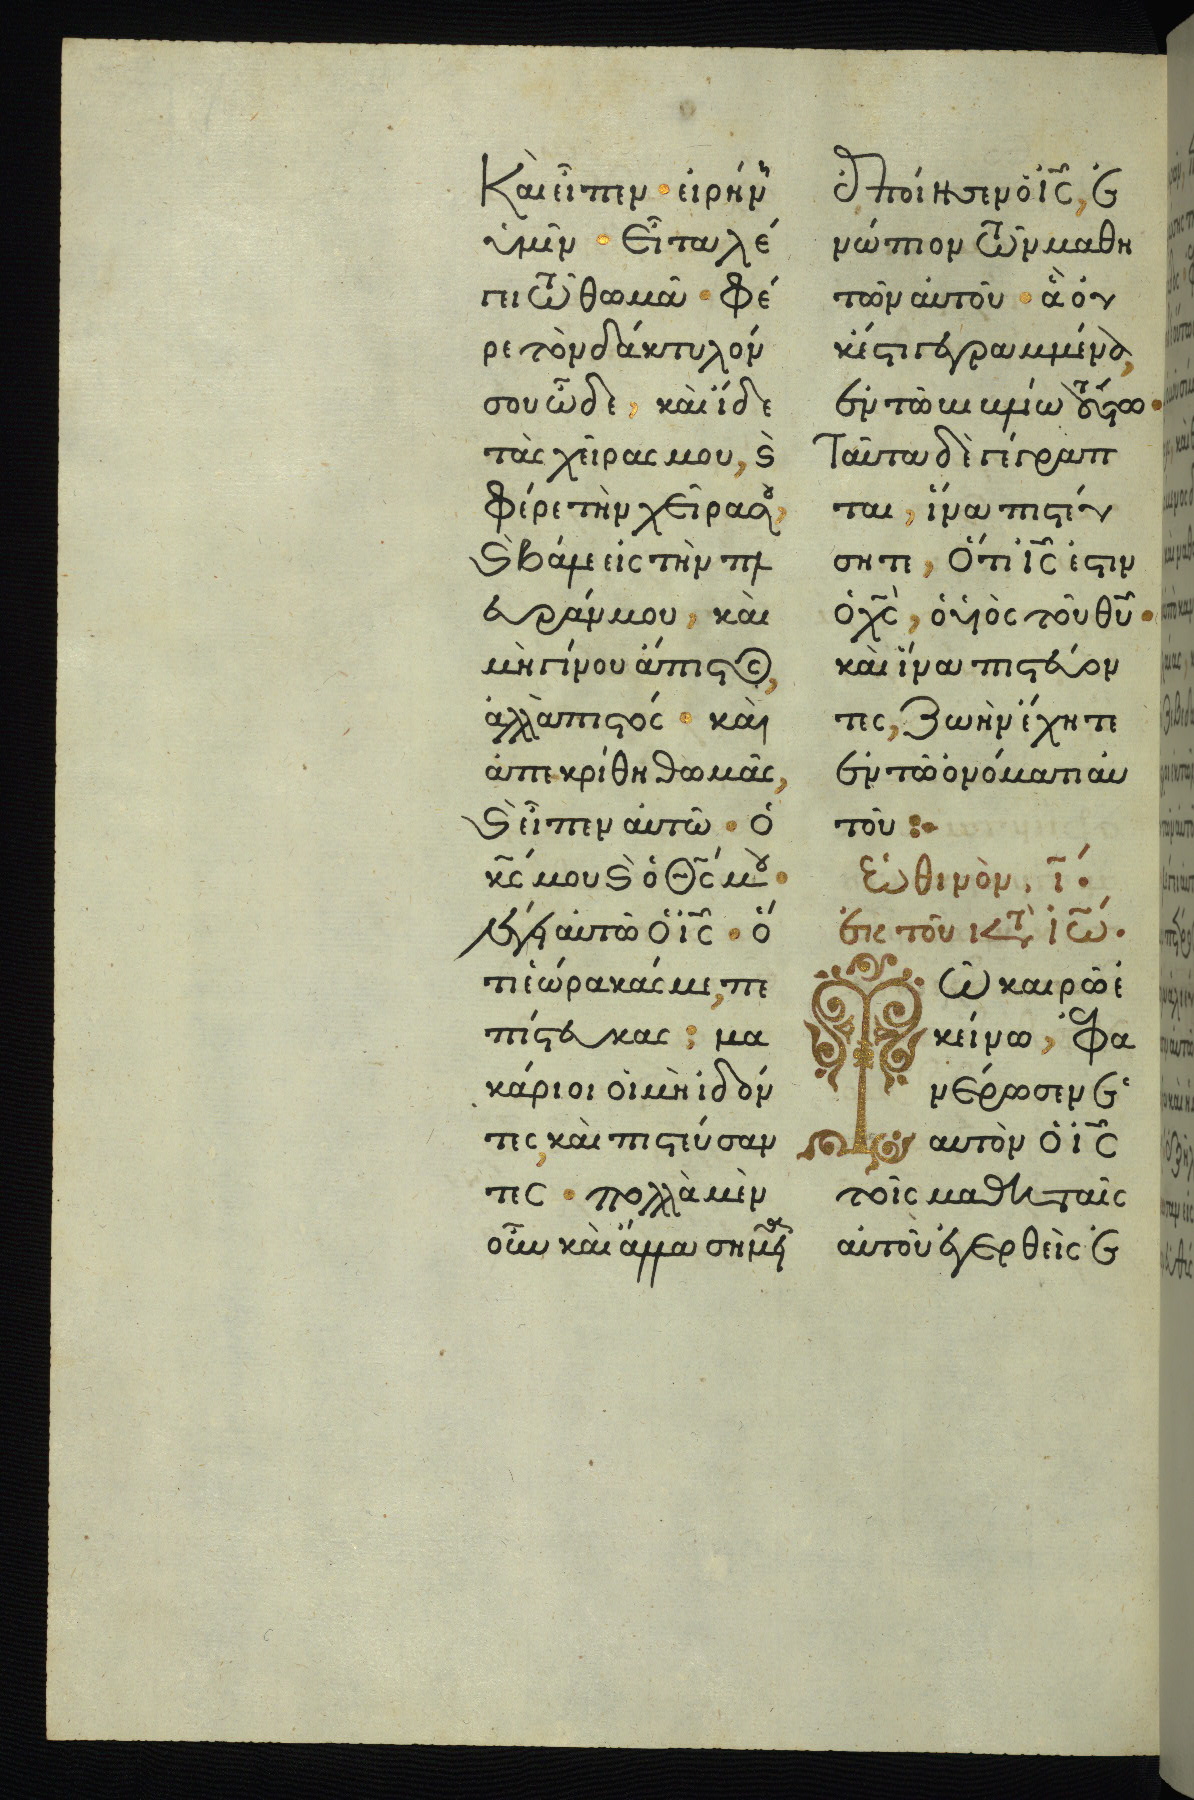 Καὶ εἶπεν · εἰρήνη
ὑμῖν · Εἶτα λέ
γει τῶ θωμᾶ · Φέ
ρε τὸν δάκτυλόν
σου ὧδε, καὶ ἴδε
τὰς χεῖρας μου, ϗ
φέρε τὴν χεῖρα σου,
ϗ βάλε εἰς τὴν πλ
ευράν μου, καὶ
μὴ γίνου ἄπιστος,
ἀλλὰ πιστός · καὶ
ἀπεκρίθη θωμᾶς,
ϗ εἶπεν αὐτῶ · ὁ
κ̅ς̅ μου ϗ ὁ θ̅ς̅ μου ·
λέγει αὐτῶ ὁ ι̅ς̅ · ὅ
τι ἑώρακάς με, πε
πίστευκας; μα
κάριοι οἱ μὴ ἰδόν
τες, καὶ πιστεύσαν
τες · πολλὰ μὲν
οὖν καὶ ἄλλα σημεῖα
ἐποίησεν ὁ ι̅ς̅, ἐ
νώπιον τῶν μαθη
τῶν αὐτοῦ · ἃ οὐ
κ ἔστι γεγραμμένα,
ἐν τῶ βιβλίω τούτω ·
Ταῦτα δὲ γέγραπ
ται, ἵνα πιστεύ
σητε, ὅτι ι̅ς̅ ἐστιν
ὁ χ̅ς̅, ὁ υἱὸς τοῦ θ̅υ̅ ·
καὶ ἵνα πιστεύον
τες, ζωὴν ἔχητε
ἐν τῶ ὀνόματι αὐ
τοῦ :·
Ἑωθινὸν. ι̅ ·
ἐκ τοῦ κατὰ ἰω̅ ·
Τῶ καιρῶ ἐ
κείνω, ἐφα
νέρωσεν ἑ
αυτὸν ὁ ι̅ς̅
τοῖς μαθηταῖς
αὐτοῦ ἐγερθεὶς ἐ